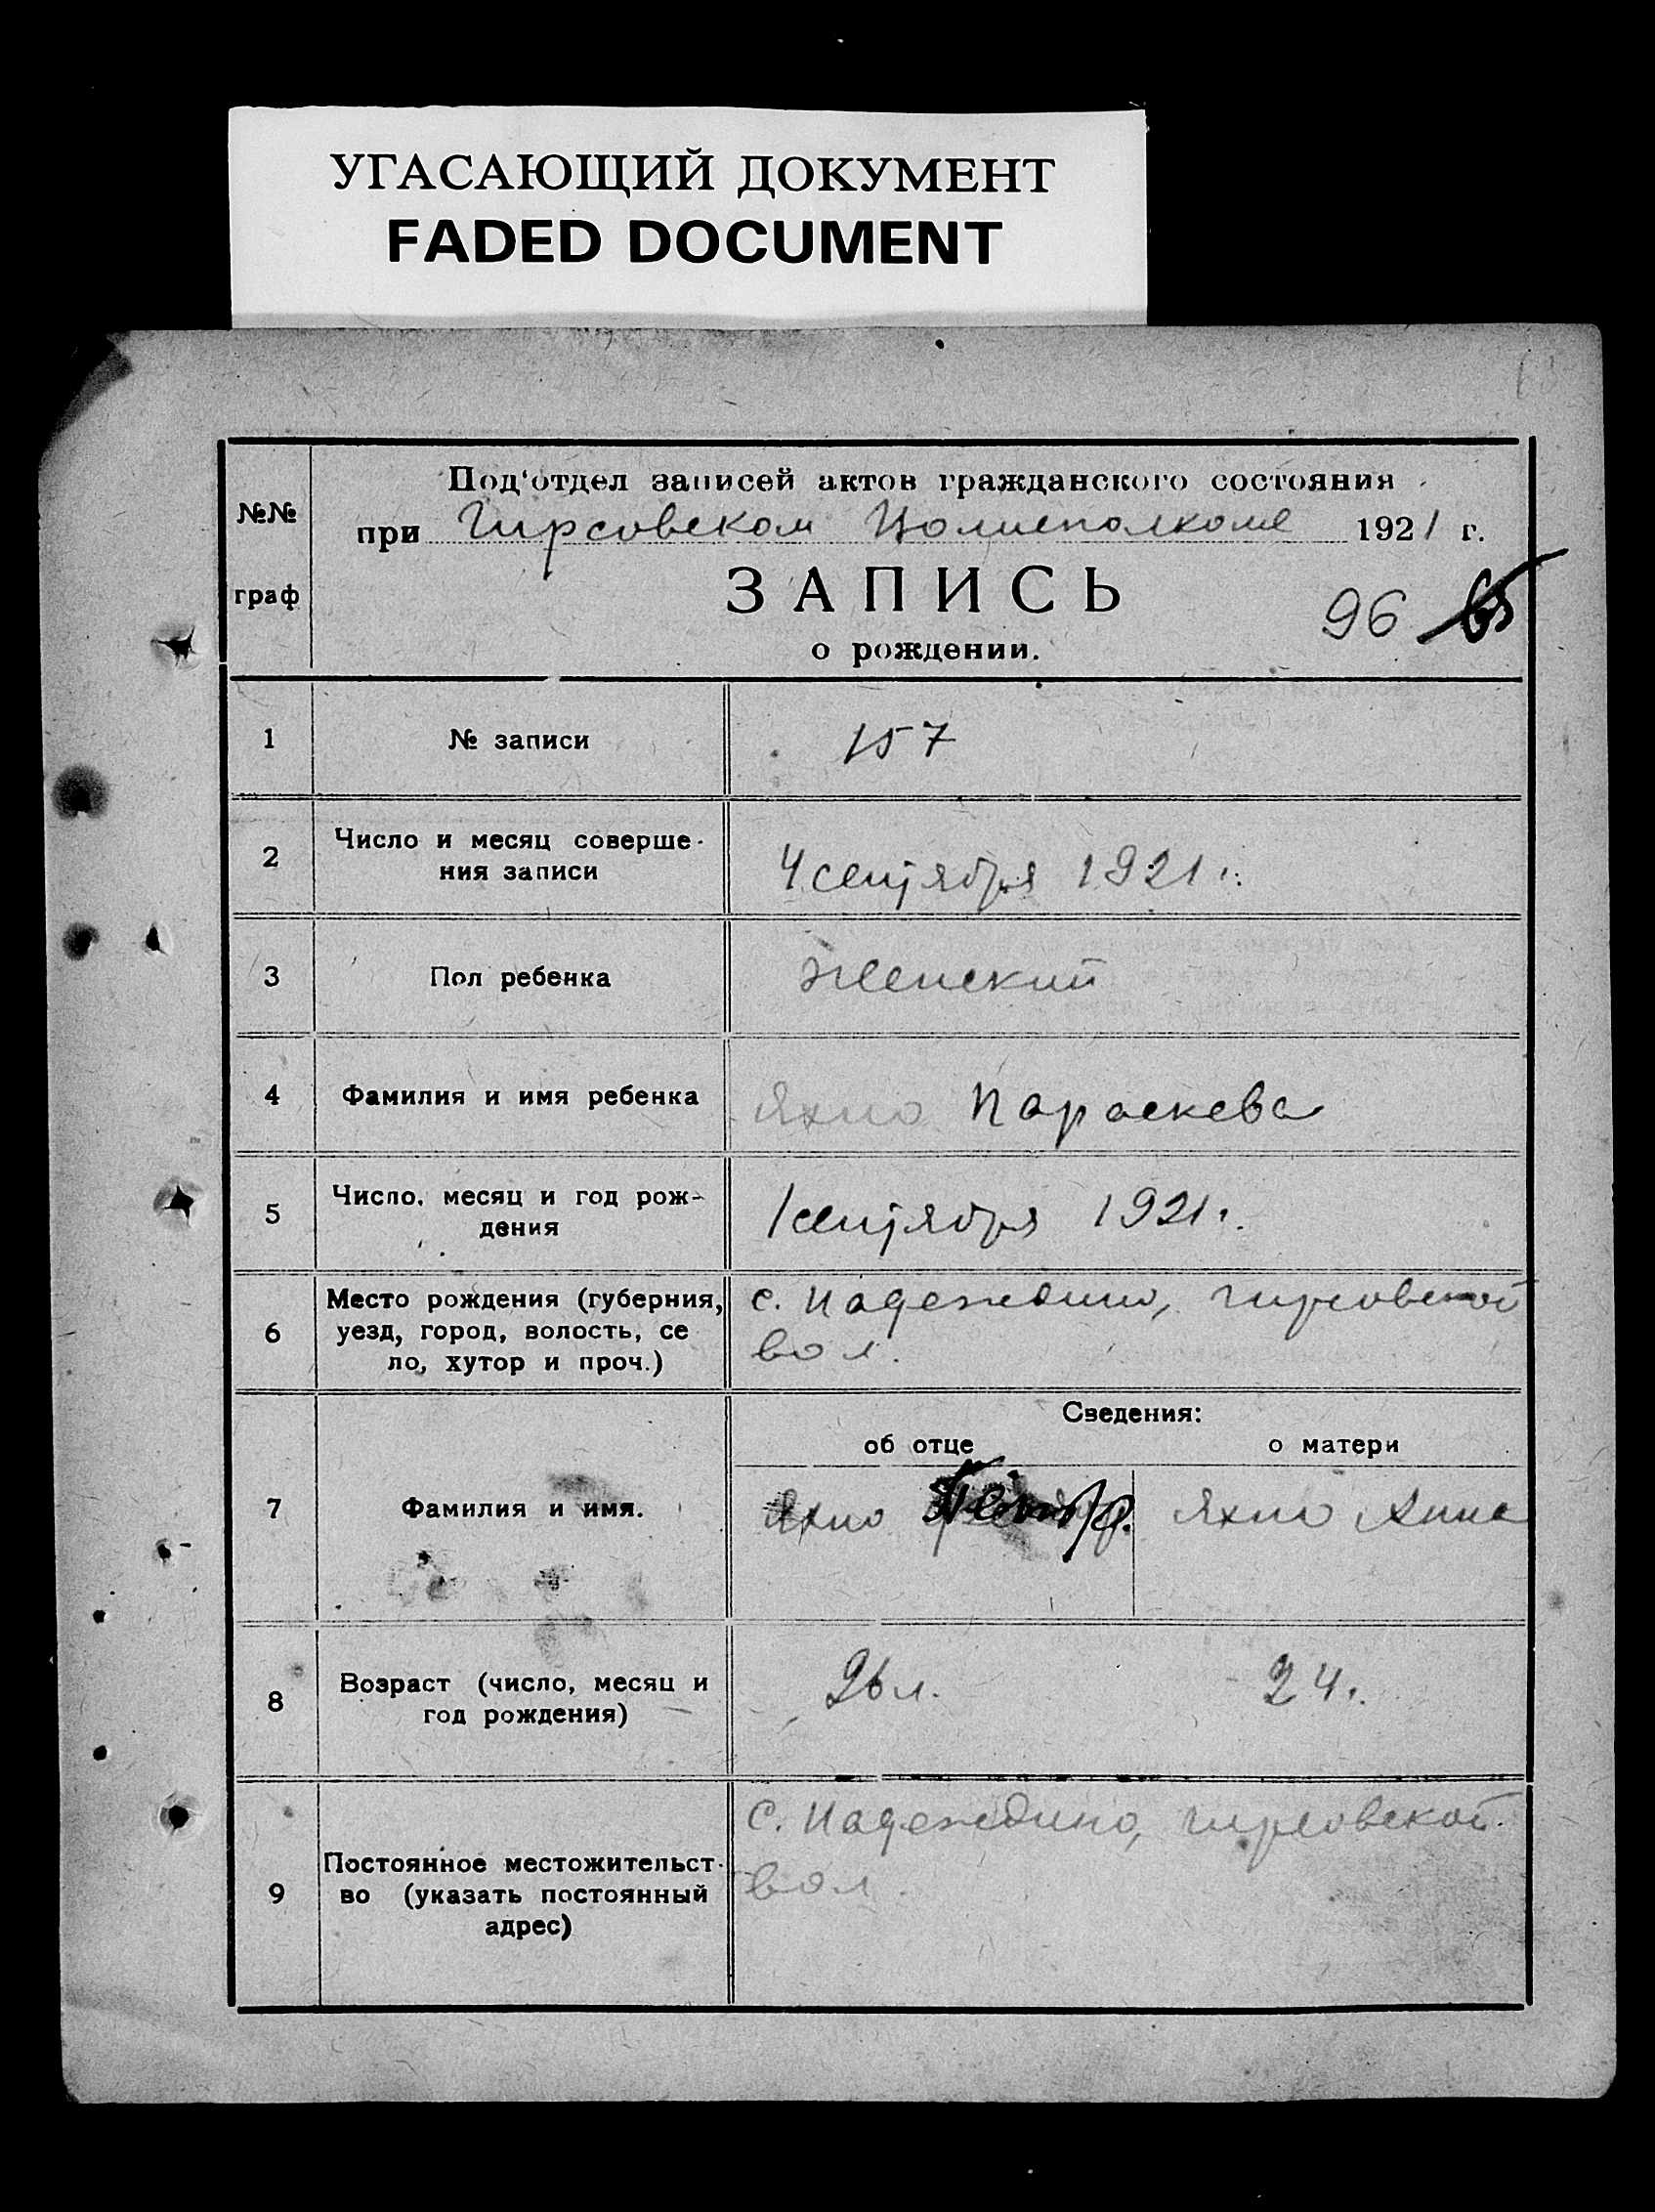 УГАСАЮЩИЙ ДОКУМЕНТ
FADED DOCUMENT
№№
граф
Под'отдел записей актов гражданского состояния
при Гирсовском Волисполкоме 1921 г.
ЗАПИСЬ
96 65
о рождении.
1 № записи 157
2 Число и месяц соверше-
ния записи 4 сентября 1921 г.
3 Пол ребенка Женский
4 Фамилия и имя ребенка Яхно Параскева
5 Число, месяц и год рож-
дения 1 сентября 1921 г.
6 Место рождения (губерния,
уезд, город, волость, се
ло, хутор и проч.)
с. Надеждино, Гирсовской
вол.
Сведения:
об отце о матери
7 Фамилия и имя. Яхно Яхно Анна
8 Возраст (число, месяц и
год рождения) 26 л. 24 г.
9 Постоянное местожительст-
во (указать постоянный
адрес)
с. Надеждино, Гирсовской
вол.